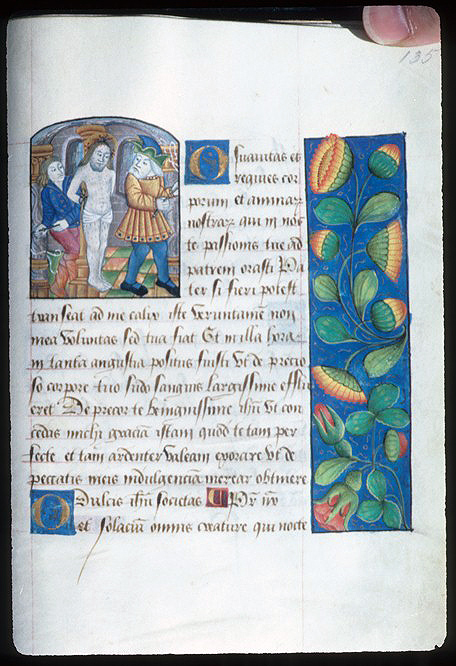 135
O suavitas et
regines cor
porum et aminar
nostrar qui in nos
te passionis tue ad
patrem orasti Pa
ter si fieri potest
transeat ad me calix iste Veruntamen non
mea voluntas sed tua fiat Et in illa hora
in tanta angustia positus fuisti Vt de precio
so corpore tuo sudo sanguis largissime efflu
eret De precor te benignissime ihu Vt con
cedas michi graciam istam quod te tam per
fecte et tam ardenter valeam exorare Vt de
peccatis meis indulgenciam merear obtinere
O Dulcis ihu societas Pr nr
et solacium omnis creature qui nocte